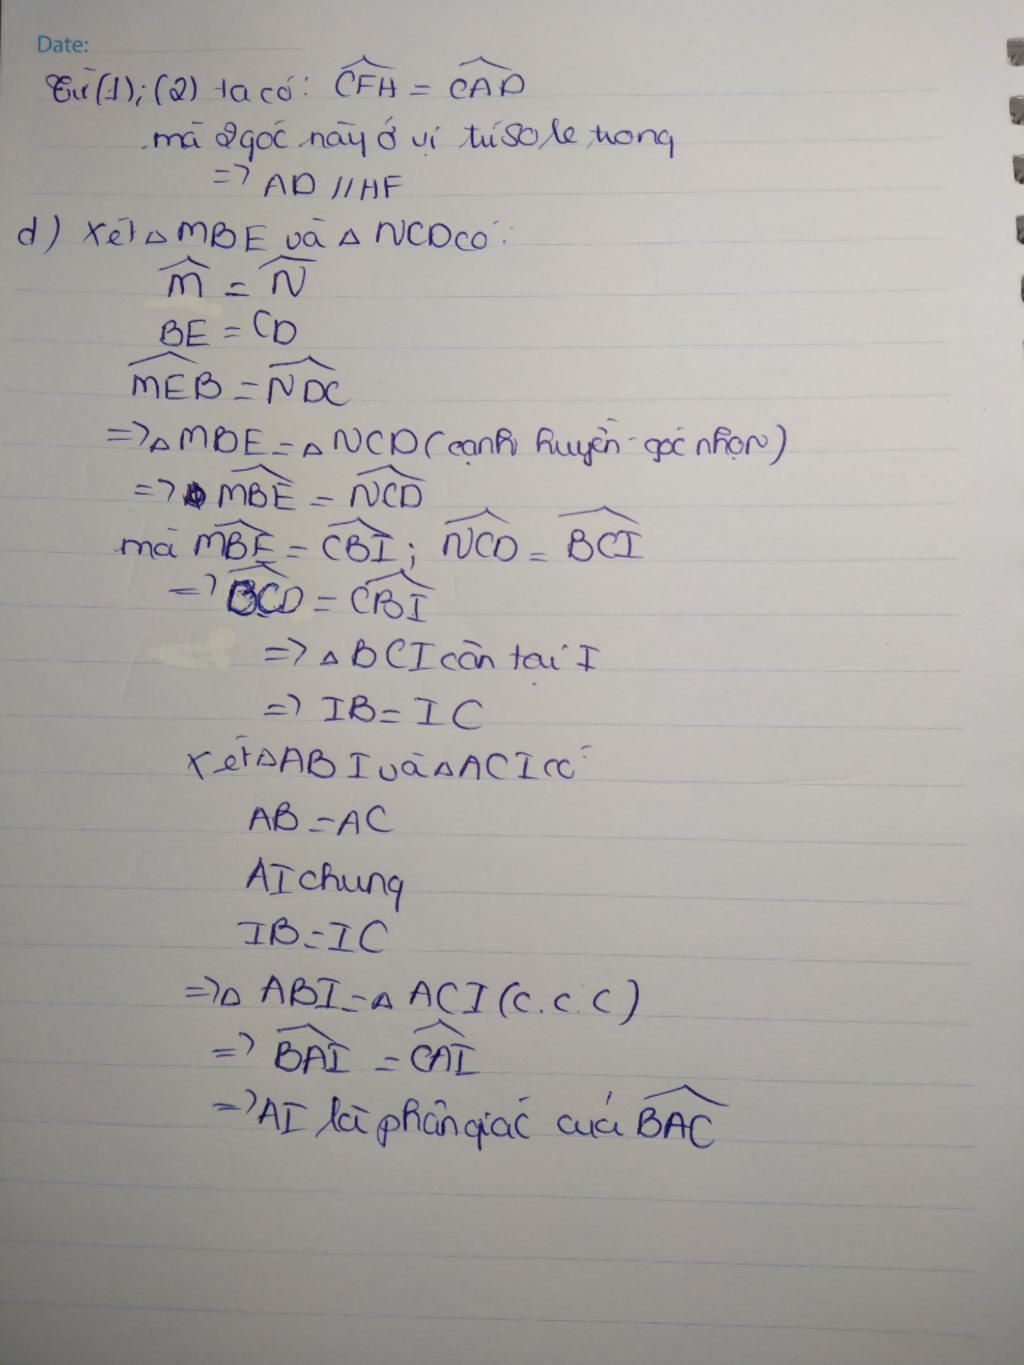 Date:
Từ (1); (2) ta có: CFH = CAD
mà 2 góc này ở vị trí so le trong
=> AD // HF
d) Xét △ MBE và △ NCD có:
M = N
BE = CD
MEB = NDC
=> △ MBE = △ NCD (cạnh huyền - góc nhọn)
=> MBE = NCD
mà MBE = CBI; NCD = BCI
=> BCD = CBI
=> △ BCI cân tại I
=> IB = IC
Xét △ ABI và △ ACI có
AB = AC
AI chung
IB = IC
=> △ ABI = △ ACI (c.c.c)
=> BAI = CAI
=> AI là phân giác của BAC